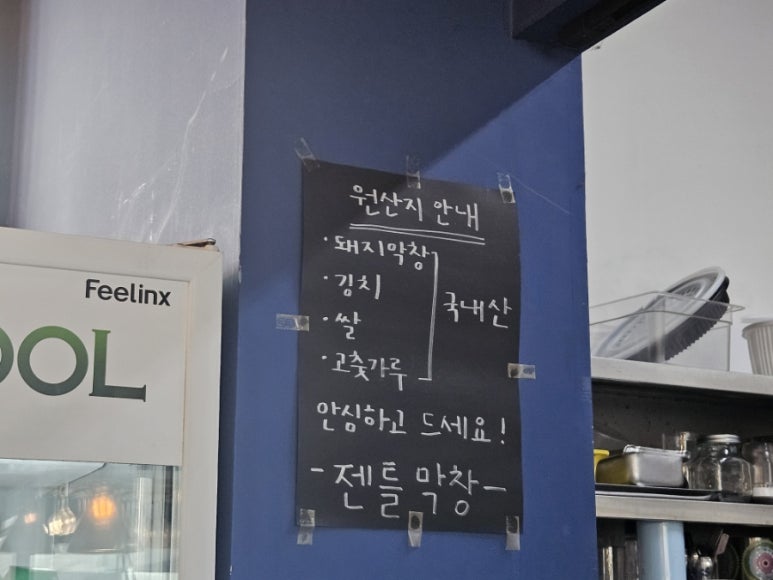 원산지 안내
· 돼지막창
· 김치
· 쌀
· 고춧가루
국내산
안심하고 드세요!
- 젠틀 막창 -
Feelinx
OOL